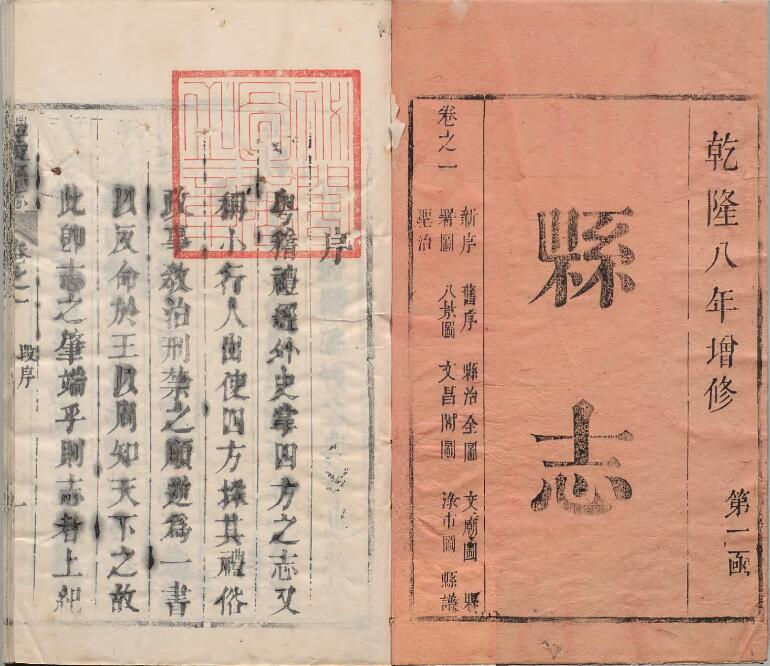 乾隆八年增修
第一函
縣志
卷之一
新序 舊序 縣治全圖 文廟圖 縣
署圖 八景圖 文昌閣圖 淥市圖 縣譜
聖治
序
粵稽禮經外史掌四方之志又
稱小行人出使四方採其禮俗
政事敎治刑禁之順逆為一書
以反命於王以周知天下之故
此卽志之肇端乎則志者上紀
卷之一
段序
一